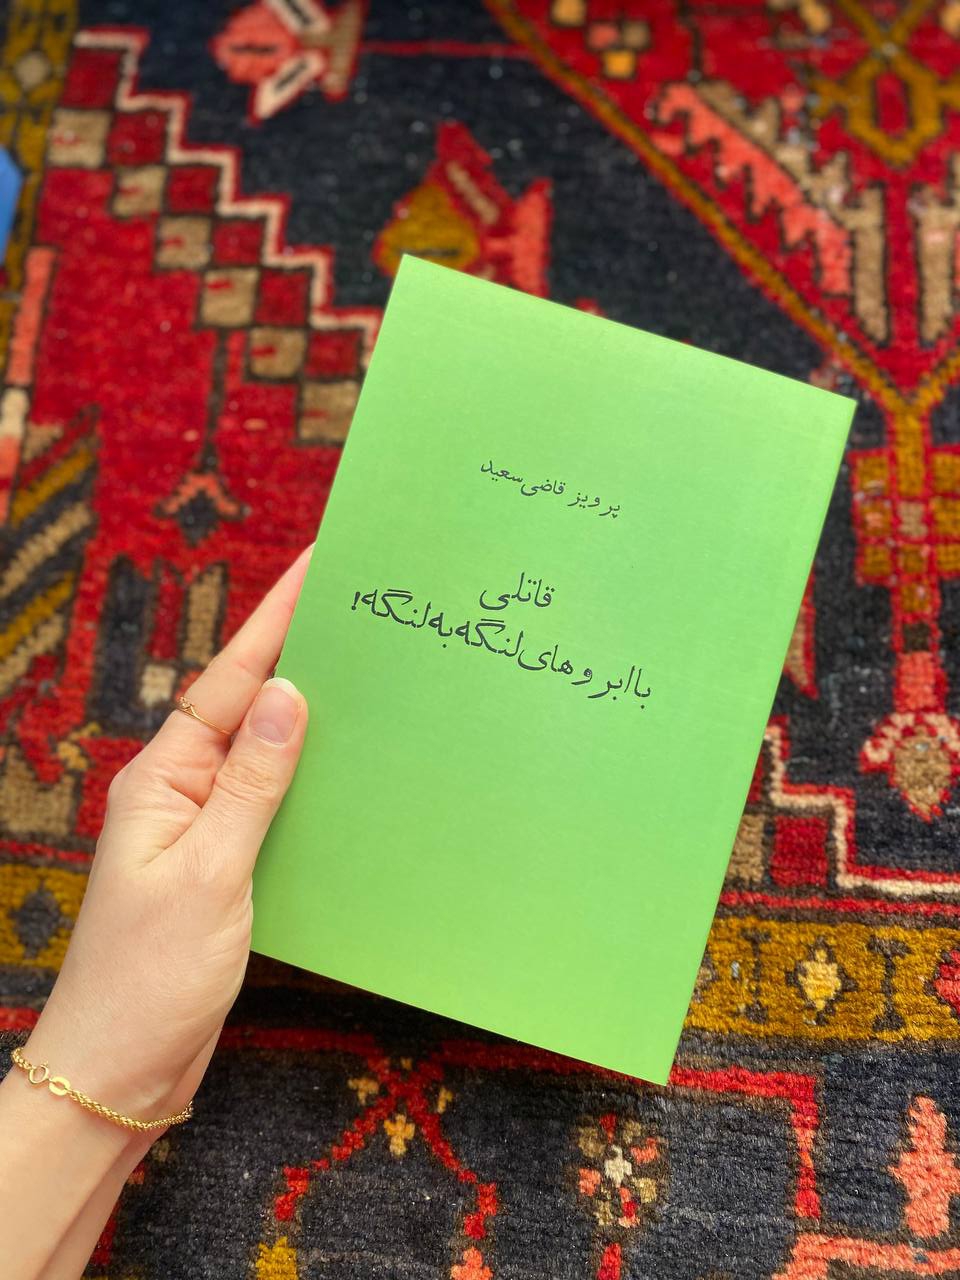 پرویز قاضی‌سعید
قاتلی
با ابروهای لنگه به لنگه!